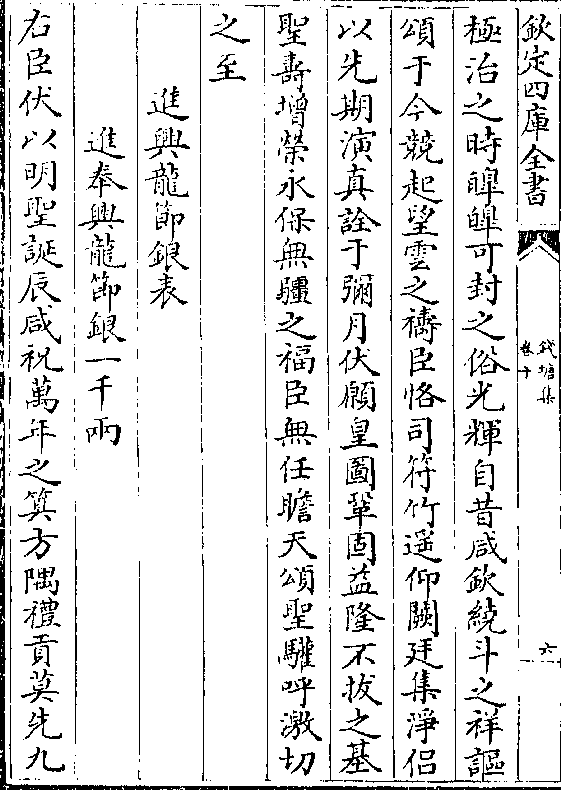 欽定四庫全書
錢塘集
卷十
六
極治之時皥皥可封之俗光輝自昔咸欽繞斗之祥謳
頌于今競起望雲之禱臣恪司符竹遥仰闕廷集淨侣
以先期演真詮于彌月伏願皇圖鞏固益隆不拔之基
聖壽增榮永保無疆之福臣無任瞻天頌聖驩呼激切
之至
進興龍節銀表
進奉興龍節銀一千兩
右臣伏以明聖誕辰咸祝萬年之筭方隅禮貢莫先九